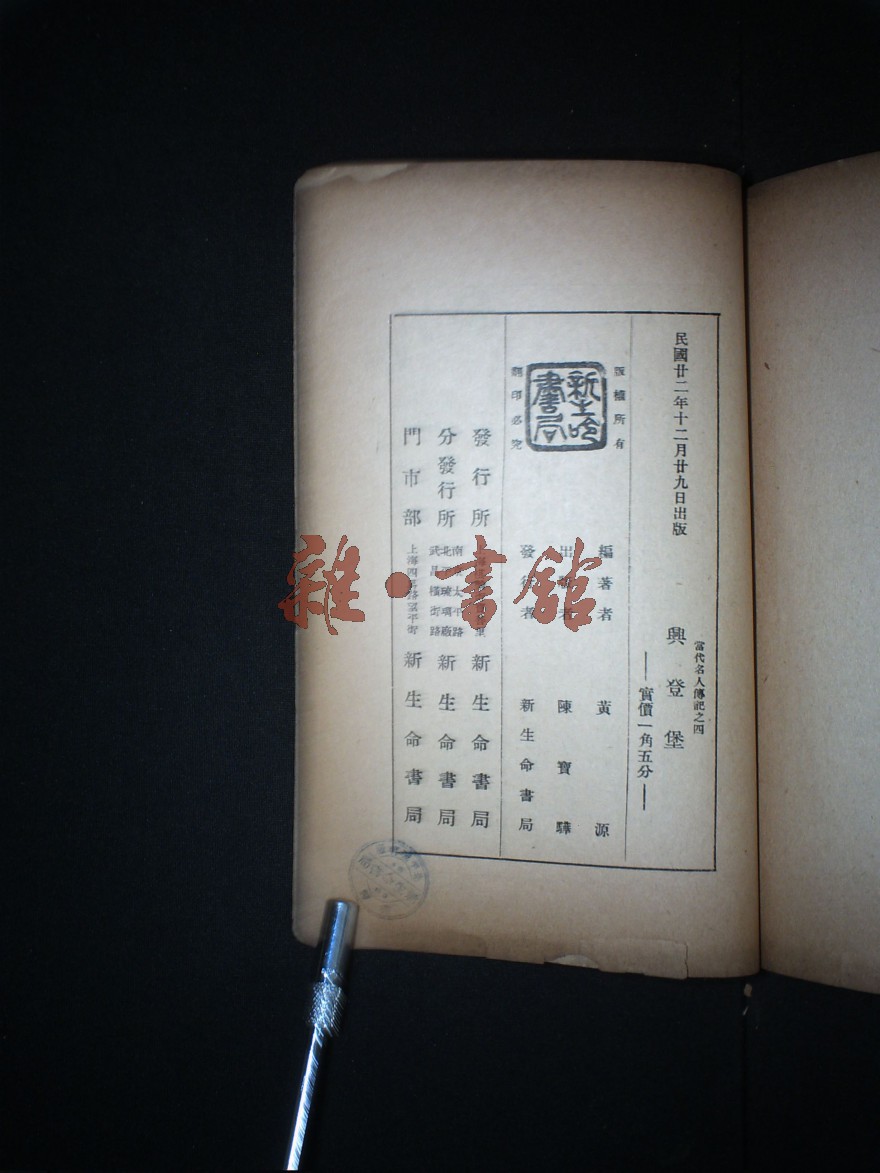 民國廿二年十二月廿九日出版
當代名人傳記之四
興登堡
實價一角五分
版權所有
翻印必究
新生命書局
編著者 黃源
出版者 陳寶驊
發行者 新生命書局
發行所 新生命書局
分發行所 南京太平路 北平琉璃廠 武昌橫街路 新生命書局
門市部 上海四馬路望平街 新生命書局
雜·書館